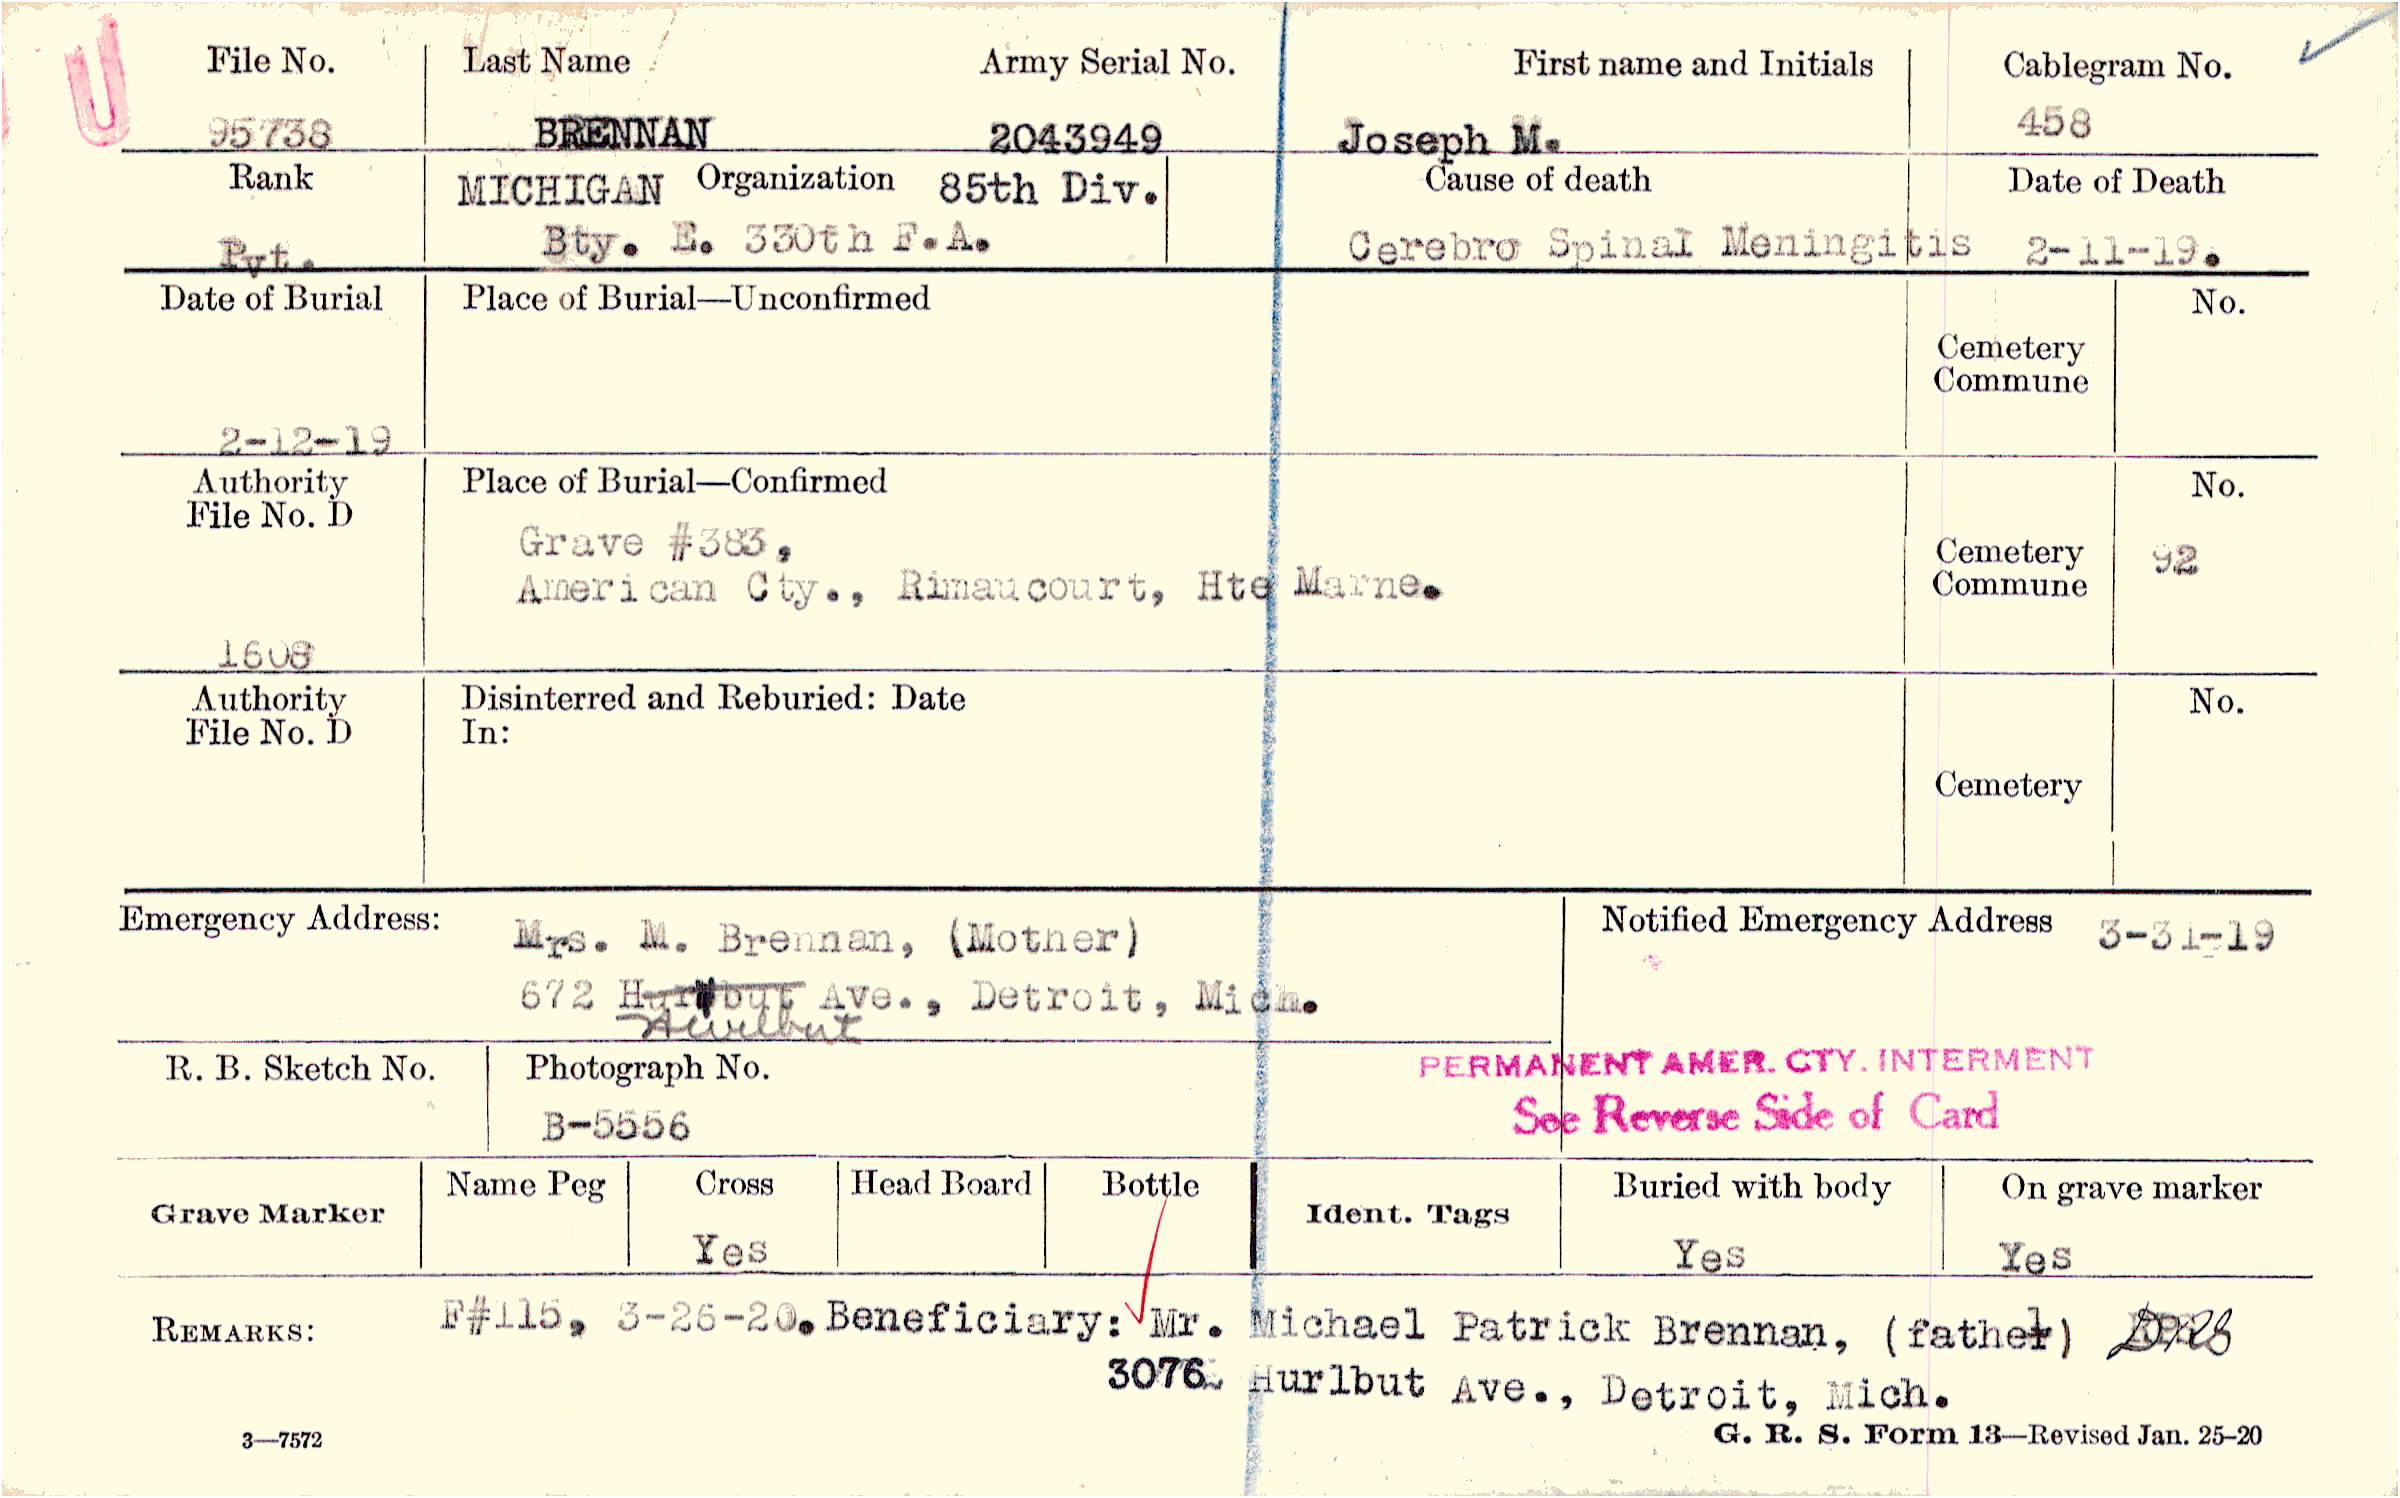 File No. Last Name Army Serial No. First name and Initials Cablegram No.
95738 BRENNAN 2043949 Joseph M. 458
Rank MICHIGAN Organization 85th Div. Cause of death Date of Death
Pvt. Bty. E. 330th F.A. Cerebro Spinal Meningitis 2-11-19.
Date of Burial Place of Burial—Unconfirmed No.
Cemetery
Commune
2-12-19
Authority Place of Burial—Confirmed No.
File No. D
Grave #383,
Cemetery 92
American Cty., Rimaucourt, Hte Marne. Commune
1608
Authority Disinterred and Reburied: Date No.
File No. D In:
Cemetery
Emergency Address: Mrs. M. Brennan, (Mother) Notified Emergency Address 3-31-19
672 Hurlbut Ave., Detroit, Mich.
Hurlbut
R. B. Sketch No. Photograph No. PERMANENT AMER. CTY. INTERMENT
B-5556 See Reverse Side of Card
Grave Marker Name Peg Cross Head Board Bottle Ident. Tags Buried with body On grave marker
Yes Yes Yes
REMARKS: F#115, 3-26-20. Beneficiary: Mr. Michael Patrick Brennan, (father)
3076 Hurlbut Ave., Detroit, Mich.
3—7572 G. R. S. Form 13—Revised Jan. 25-20